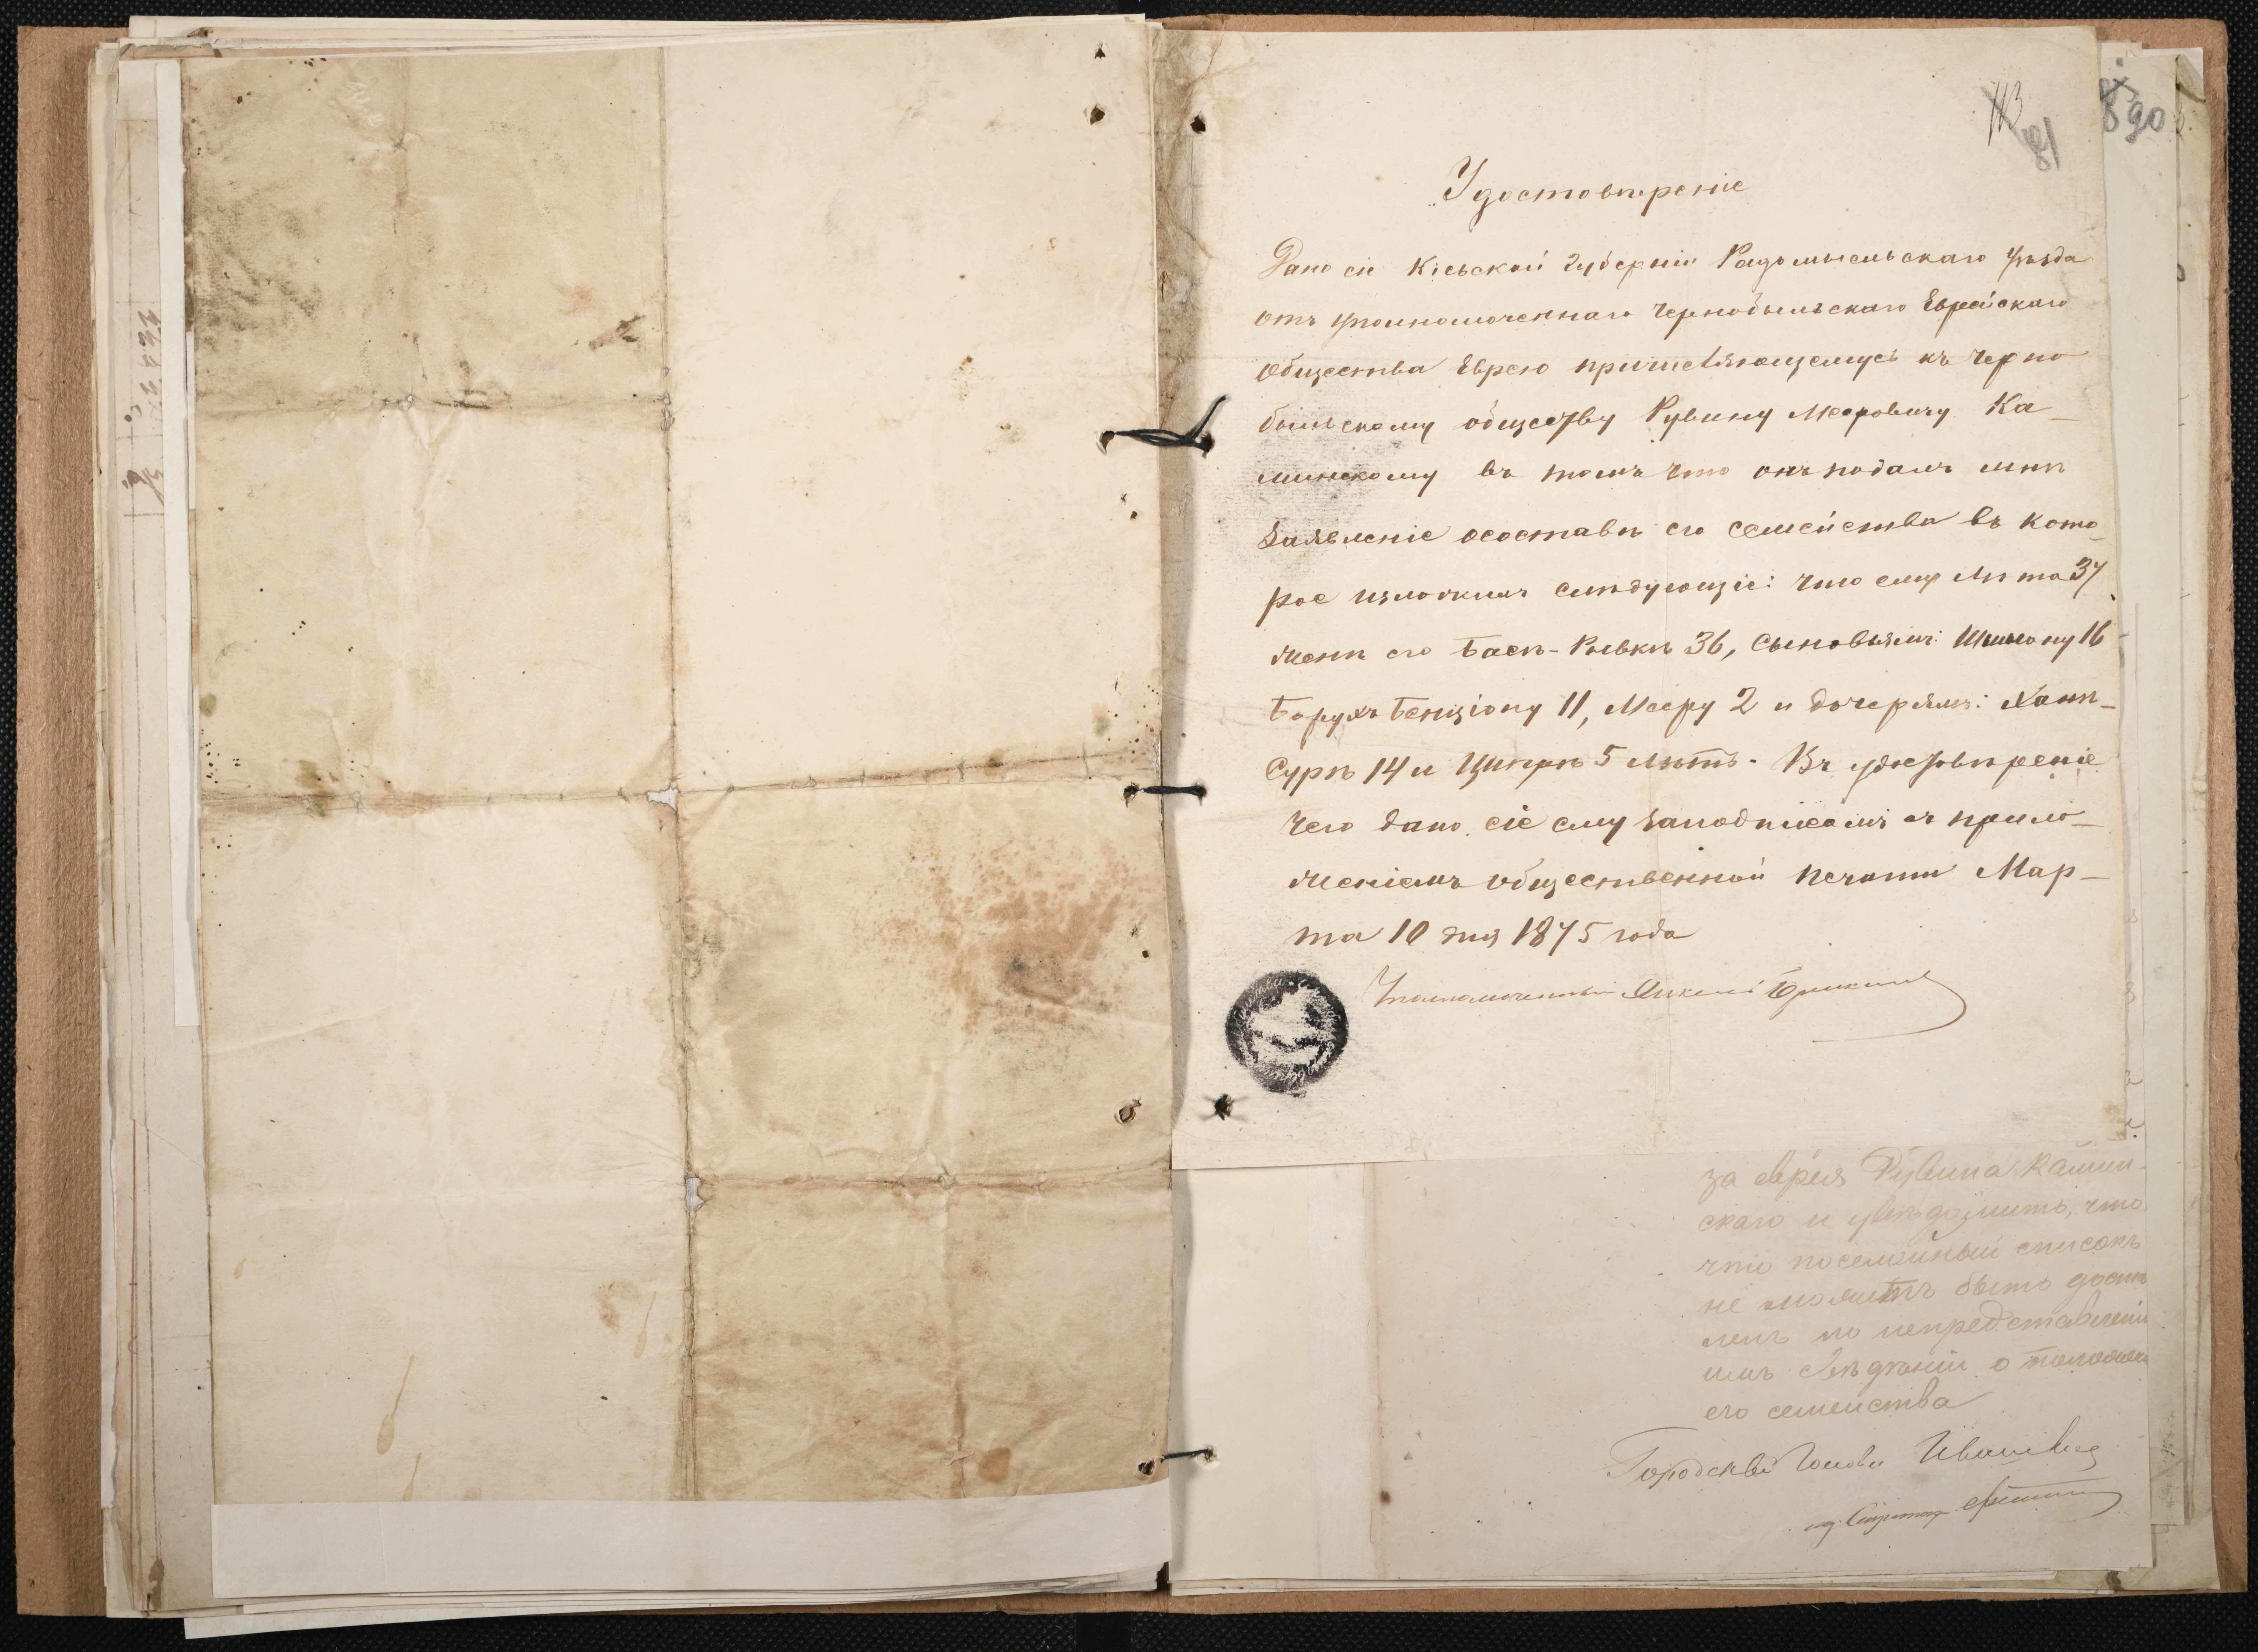 113
81
8
90
Удостовѣреніе
Дано сіе Кіевской Губерніи Радомысльскаго Уѣзда
отъ уполномоченнаго Чернобыльскаго Еврейскаго
Общества Еврею причисляющемуся къ Черно
быльскому обществу Рувину Меровичу Ка–
минскому въ томъ что онъ подалъ мнѣ
Заявленіе осоставѣ его семейства въ кото–
рое изложилъ слѣдующіе: что ему лѣта 37
женѣ его Басѣ-Ривкѣ 36, Сыновьямъ: Шимону 16
Борухъ Бенціону 11, Мееру 2 и дочерямъ: Ханѣ–
Сурѣ 14 и Ципрѣ 5 лѣтъ. Въ удостовѣреніе
чего дано сіе ему заподписомъ съ прило–
женіемъ общественной печати Мар–
та 10 дня 1875 года
Уполномоченный
за еврея Рувина Камин–
скаго и увѣдомить, что
что посемейный списокъ
не можетъ быть
по непредставленію
имъ свѣдѣній о
его семейства
Городской Голова